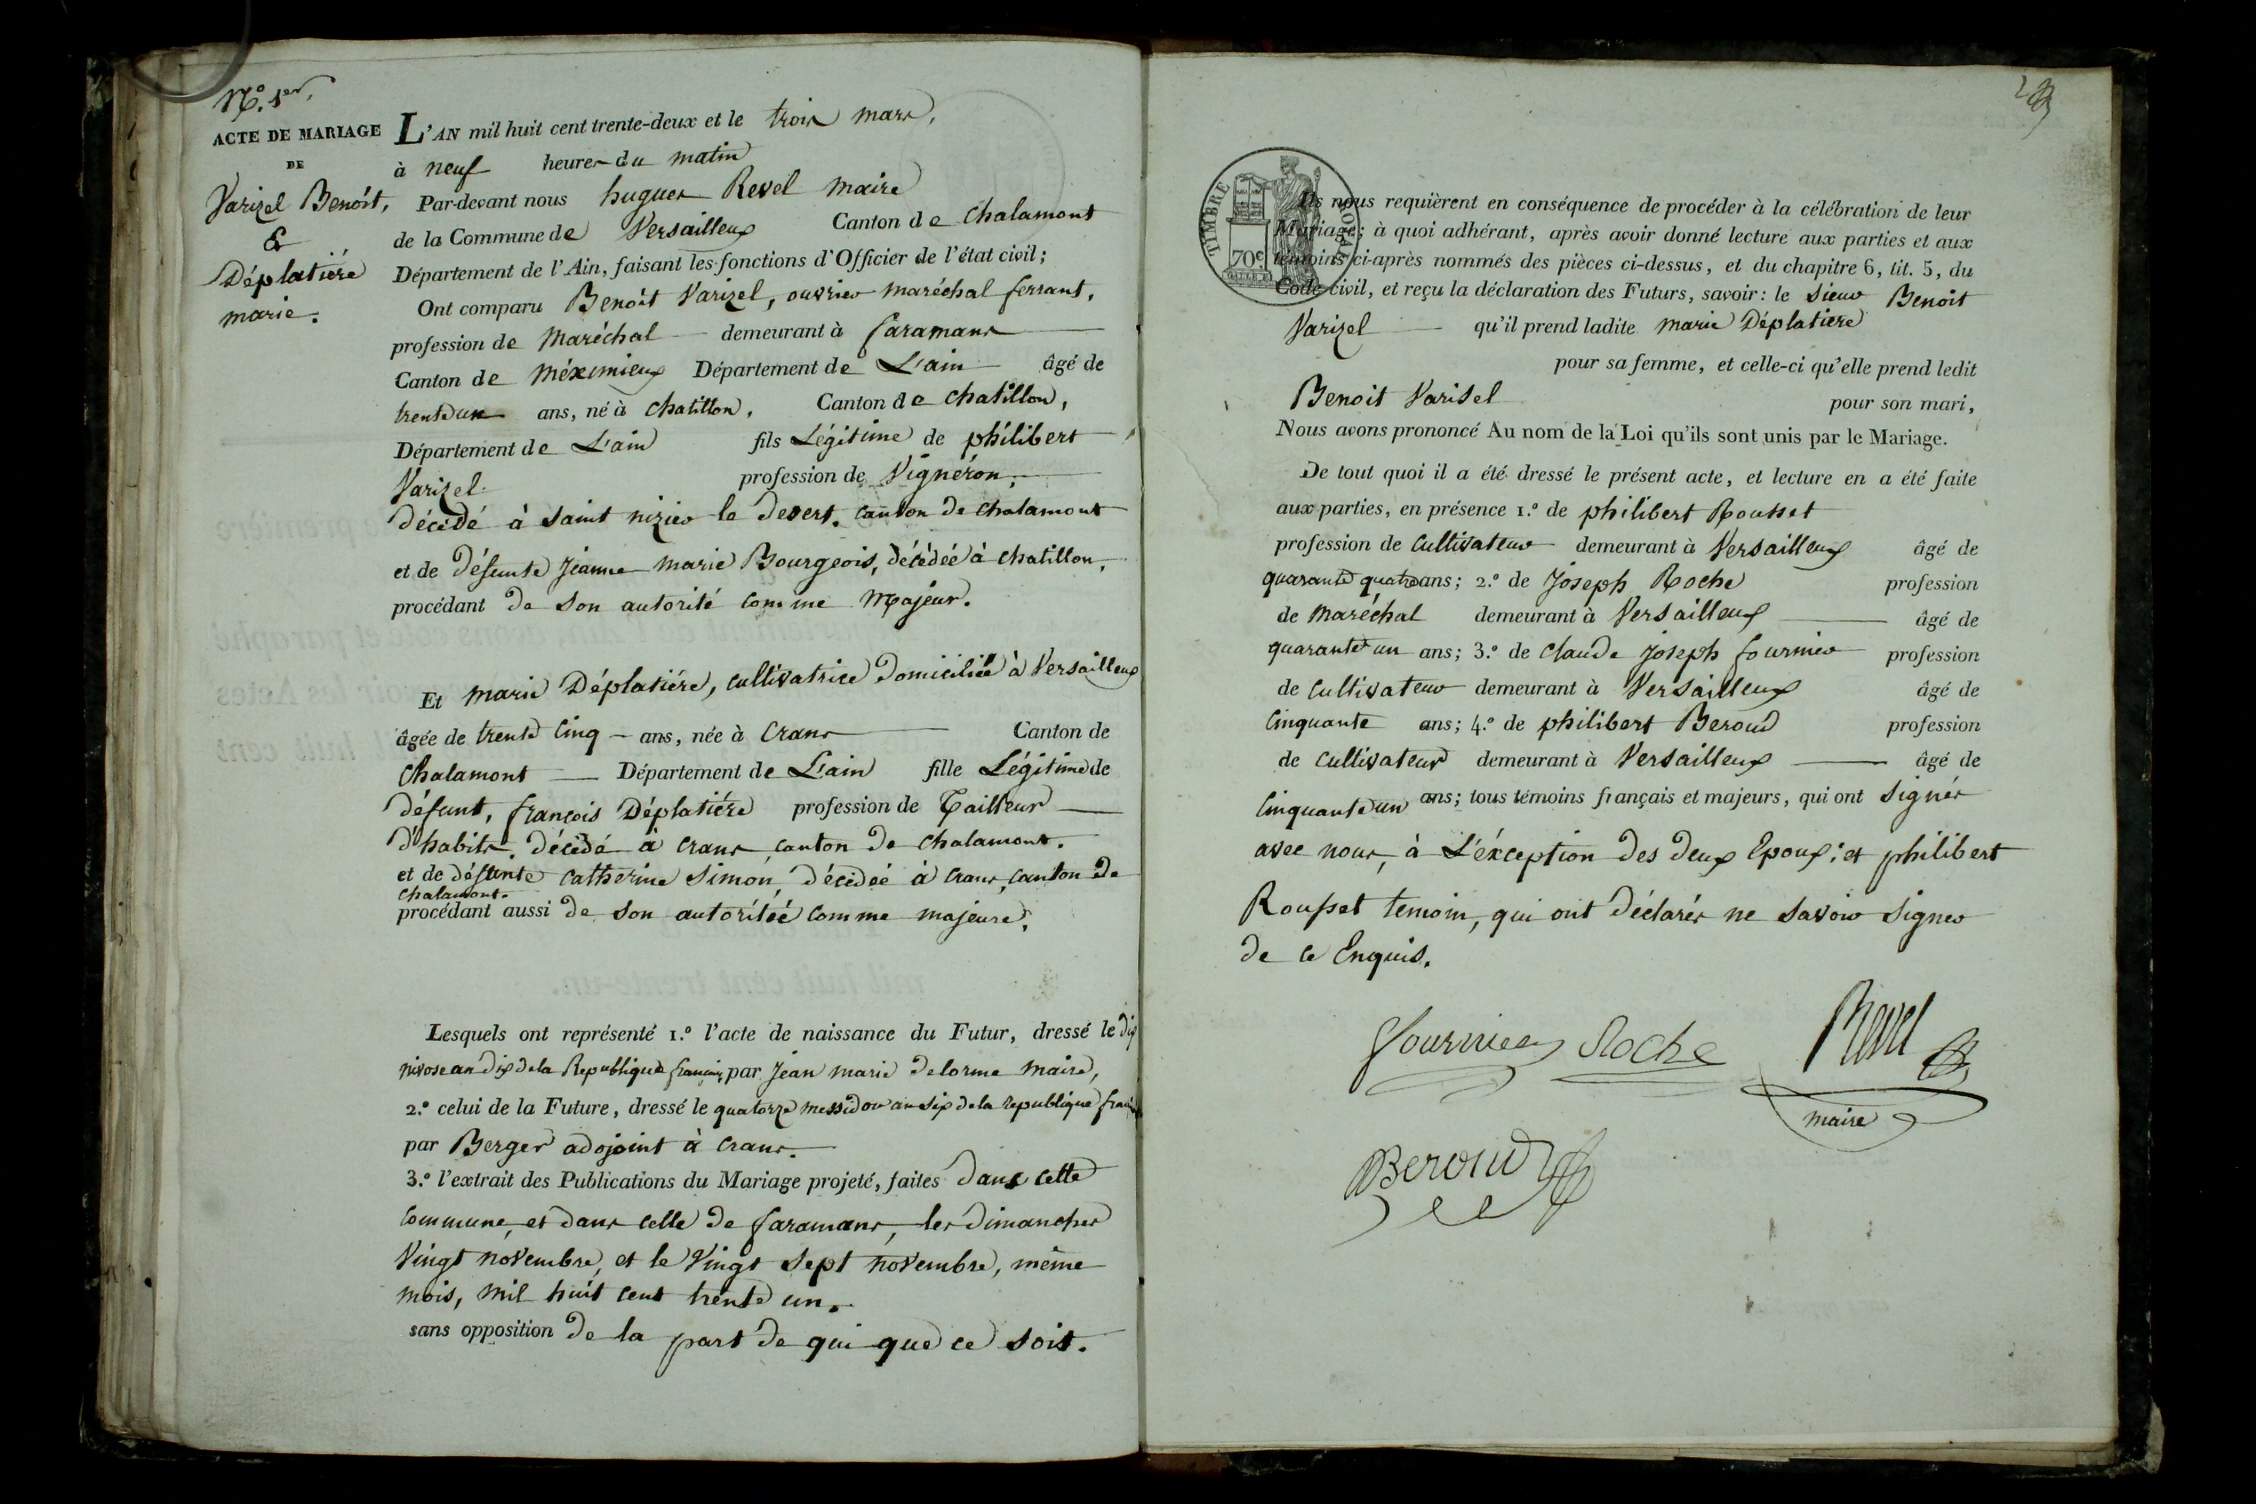 N.º 1er.
ACTE DE MARIAGE
DE
Varizel Benoit,
&
Déplatiére
marie.
L'AN mil huit cent trente-deux et le trois mars,
à neuf heures du matin
Par-devant nous hugues Revel maire
de la Commune de Versailleux Canton de Chalamont
Département de l'Ain, faisant les fonctions d'Officier de l'état civil;
Ont comparu Benoit Varizel, ouvrier maréchal ferrant,
profession de Maréchal demeurant à faramans
Canton de méximieux Département de L'ain âgé de
trente un ans, né à Chatillon, Canton de Chatillon,
Département de L'ain fils Légitime de philibert
Varizel profession de Vignéron,
décédé à Saint nizier le desert, canton de Chalamont
et de défunte Jeanne marie Bourgeois, décédée à Chatillon,
procédant de son autorité comme Majeur.
Et marie Déplatiére, cultivatrice domiciliée à Versailleux
âgée de trente cinq ans, née à Crans Canton de
Chalamont Département de L'ain fille Légitime de
défunt, françois Déplatiére profession de Tailleur
d'habits, décédé à Crans, canton de Chalamont.
et de défunte Catherine Simon, décédée à Crans, canton de
Chalamont.
procédant aussi de son autoritéé comme majeure.
Lesquels ont représenté 1.º l'acte de naissance du Futur, dressé le dix
nivose an dix de la Republique française par Jean marie Delorme maire,
2.º celui de la Future, dressé le quatorze messidor an six de la republique
par Berger adojoint à Crans.
3.º l'extrait des Publications du Mariage projeté, faites dans cette
Commune, et dans celle de faramans, les dimanches
Vingt novembre, et le Vingt sept novembre, même
mois, mil huit cent trente un.
sans opposition de la part de qui que ce soit.
TIMBRE ROYAL
70c
Ils nous requièrent en conséquence de procéder à la célébration de leur
Mariage; à quoi adhérant, après avoir donné lecture aux parties et aux
témoins ci-après nommés des pièces ci-dessus, et du chapitre 6, tit. 5, du
Code civil, et reçu la déclaration des Futurs, savoir: le Sieur Benoit
Varizel qu'il prend ladite marie Déplatiere
pour sa femme, et celle-ci qu'elle prend ledit
Benoit Varisel pour son mari,
Nous avons prononcé Au nom de la Loi qu'ils sont unis par le Mariage.
De tout quoi il a été dressé le présent acte, et lecture en a été faite
aux parties, en présence 1.º de philibert Rousset
profession de Cultivateur demeurant à Versailleux âgé de
quarante quatre ans; 2.º de Joseph Roche profession
de Maréchal demeurant à Versailleux âgé de
quarante un ans; 3.º de Claude Joseph fournier profession
de Cultivateur demeurant à Versailleux âgé de
Cinquante ans; 4.º de philibert Beroud profession
de Cultivateur demeurant à Versailleux âgé de
Cinquante un ans; tous témoins français et majeurs, qui ont Signés
avec nous, à L'éxception des deux Epoux; et philibert
Rousset temoin, qui ont déclarés ne savoir Signer
de ce Enquis.
Fournier Roche Revel
maire
Beroud